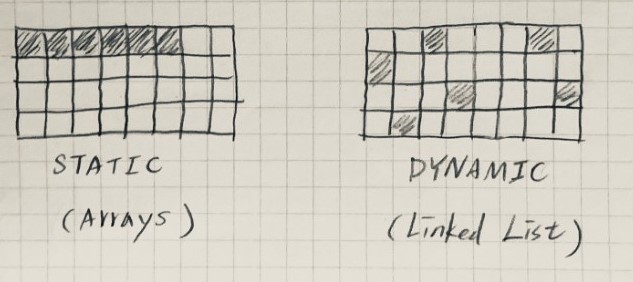 STATIC
(Arrays)
DYNAMIC
(Linked List)